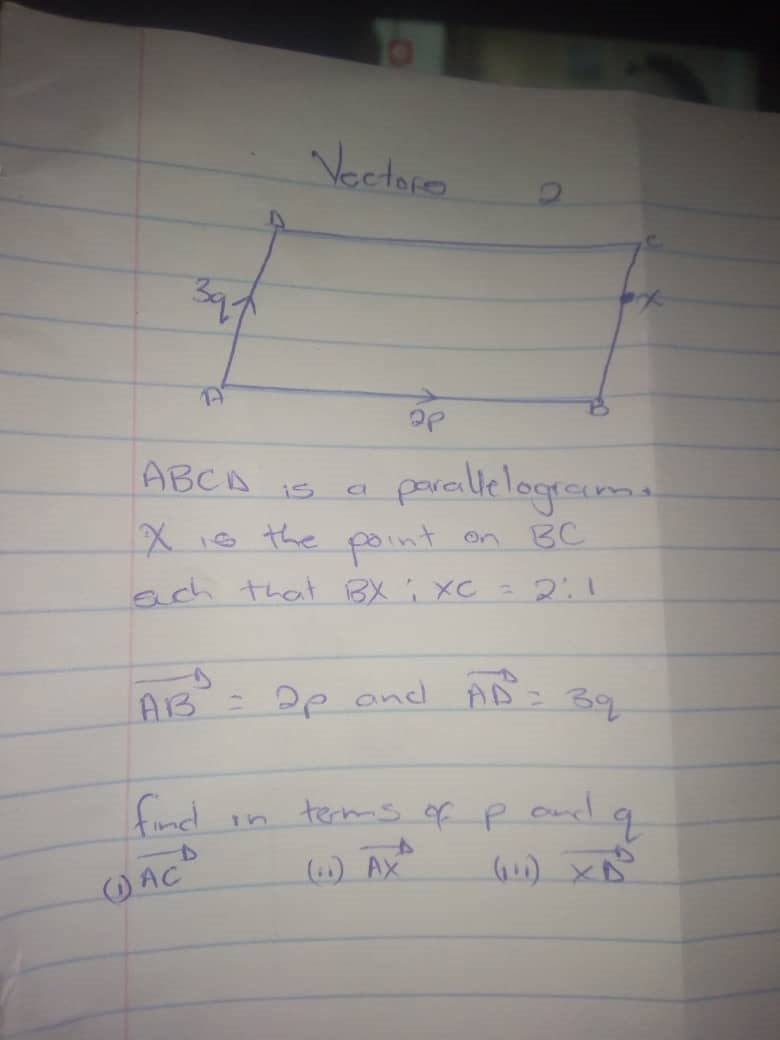 Vectors 2
D
C
3q
X
A
B
2p
ABCD is a parallelogram.
X is the point on BC
such that BX : XC = 2:1
AB = 2p and AD = 3q
find in terms of p and q
(i) AC (ii) AX (iii) XD